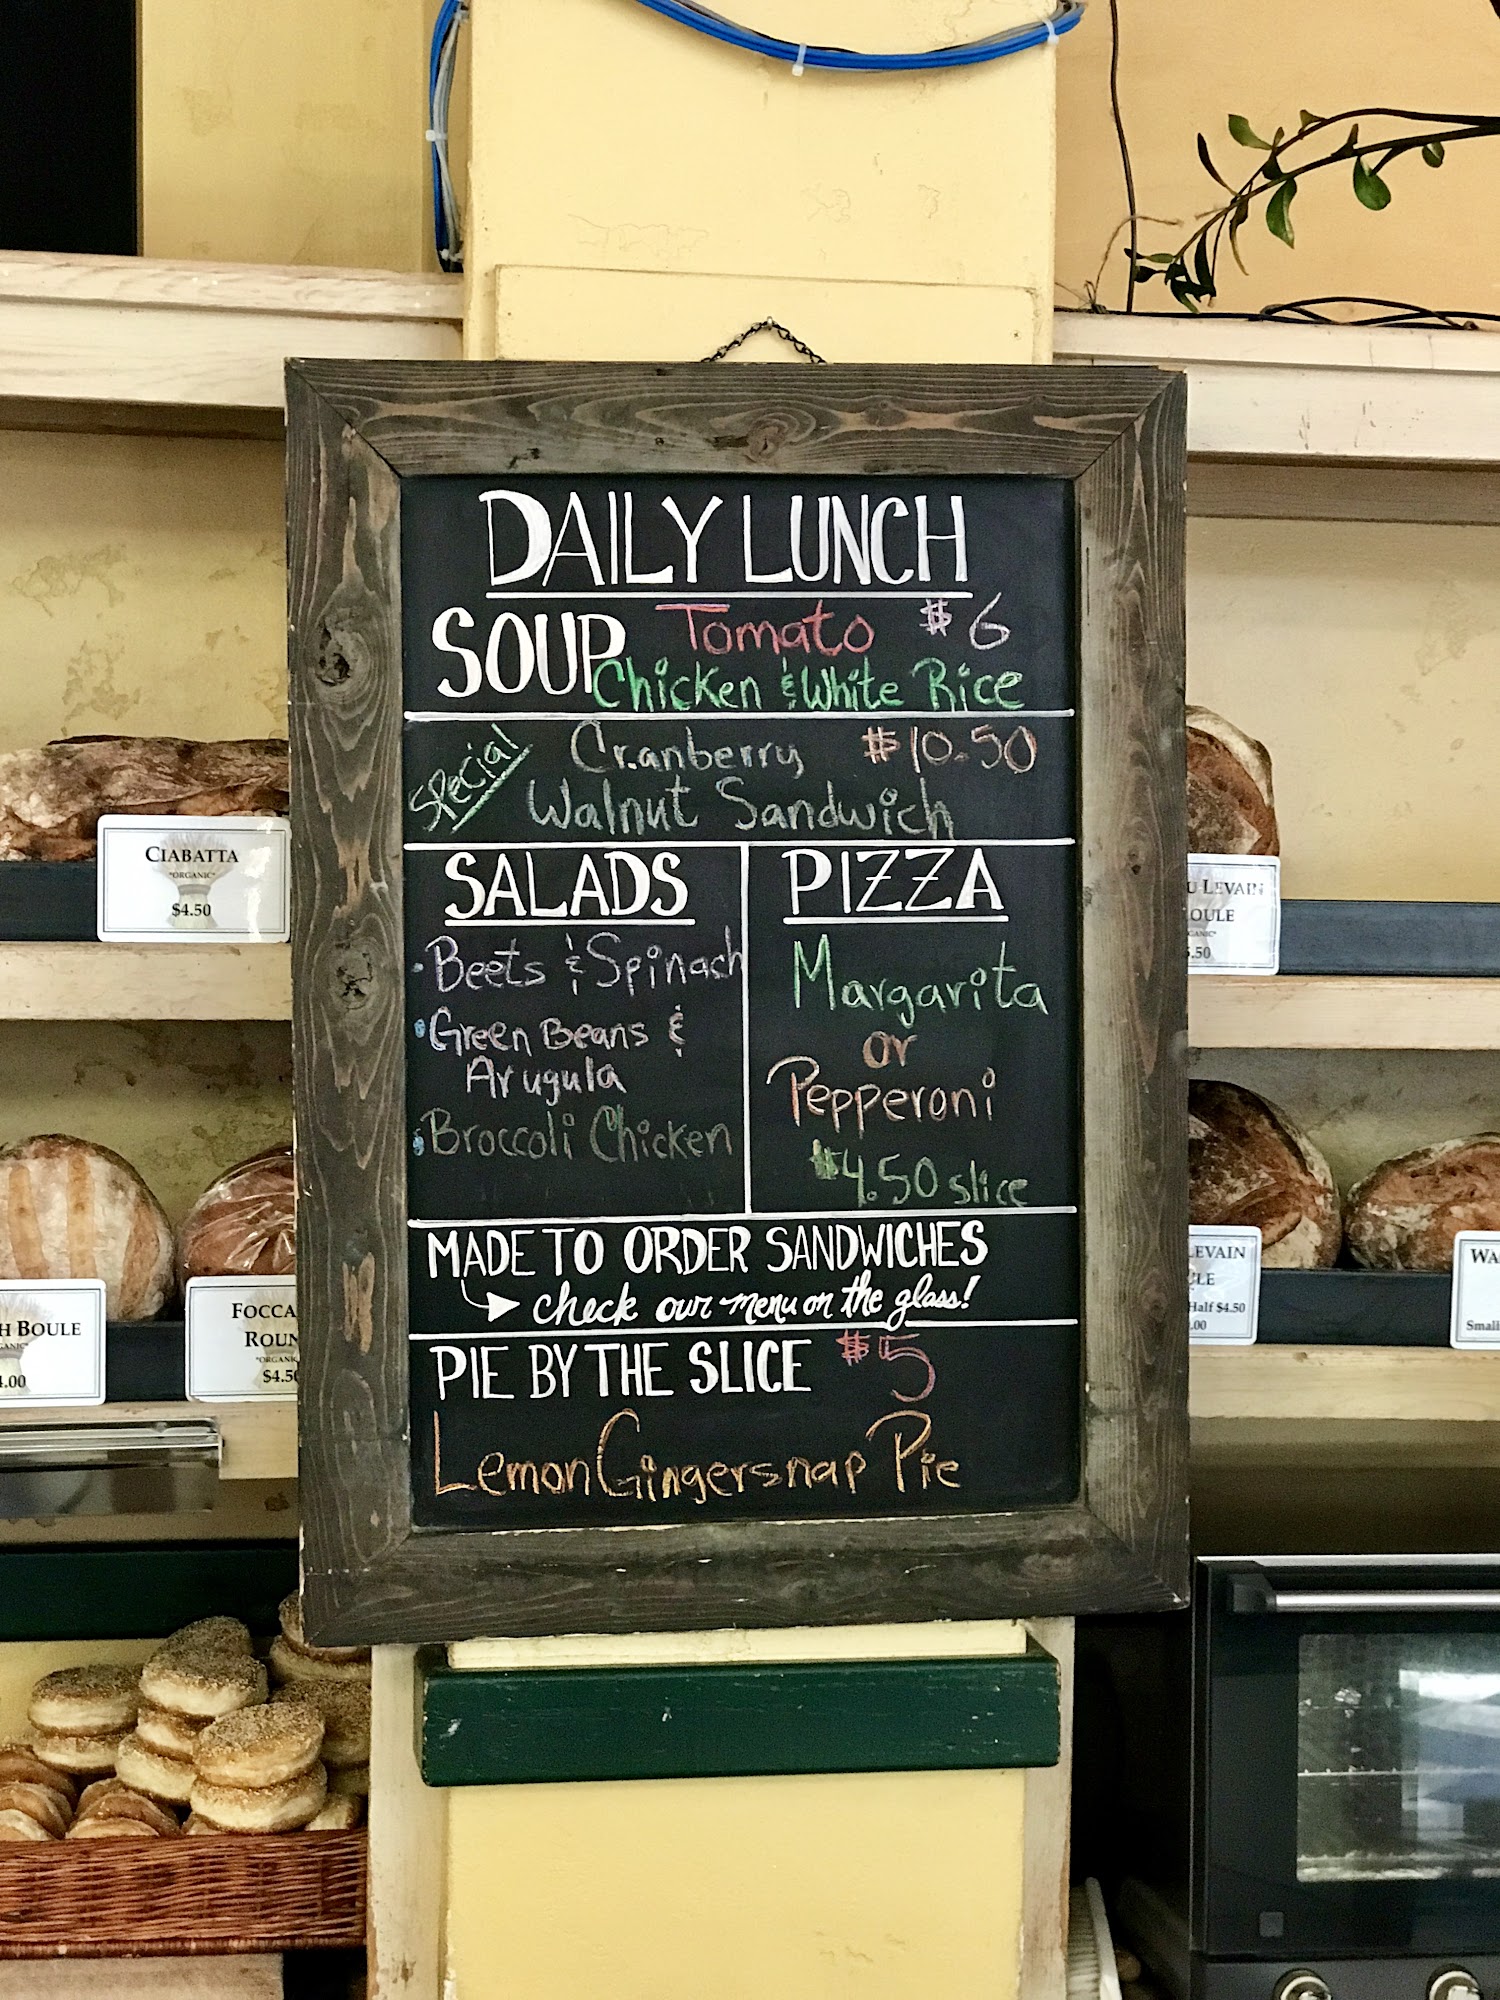 DAILY LUNCH
SOUP Tomato $6
Chicken & White Rice
Special Cranberry $10.50
Walnut Sandwich
SALADS
• Beets & Spinach
• Green Beans &
Arugula
• Broccoli Chicken
PIZZA
Margarita
or
Pepperoni
$4.50 slice
MADE TO ORDER SANDWICHES
check our menu on the glass!
PIE BY THE SLICE $5
Lemon Gingersnap Pie
CIABATTA
*ORGANIC*
$4.50
LEVAIN
OULE
.50
H BOULE
.00
FOCCA
ROUN
*ORGANIC
$4.50
LEVAIN
LE
Half $4.50
.00
WA
Small